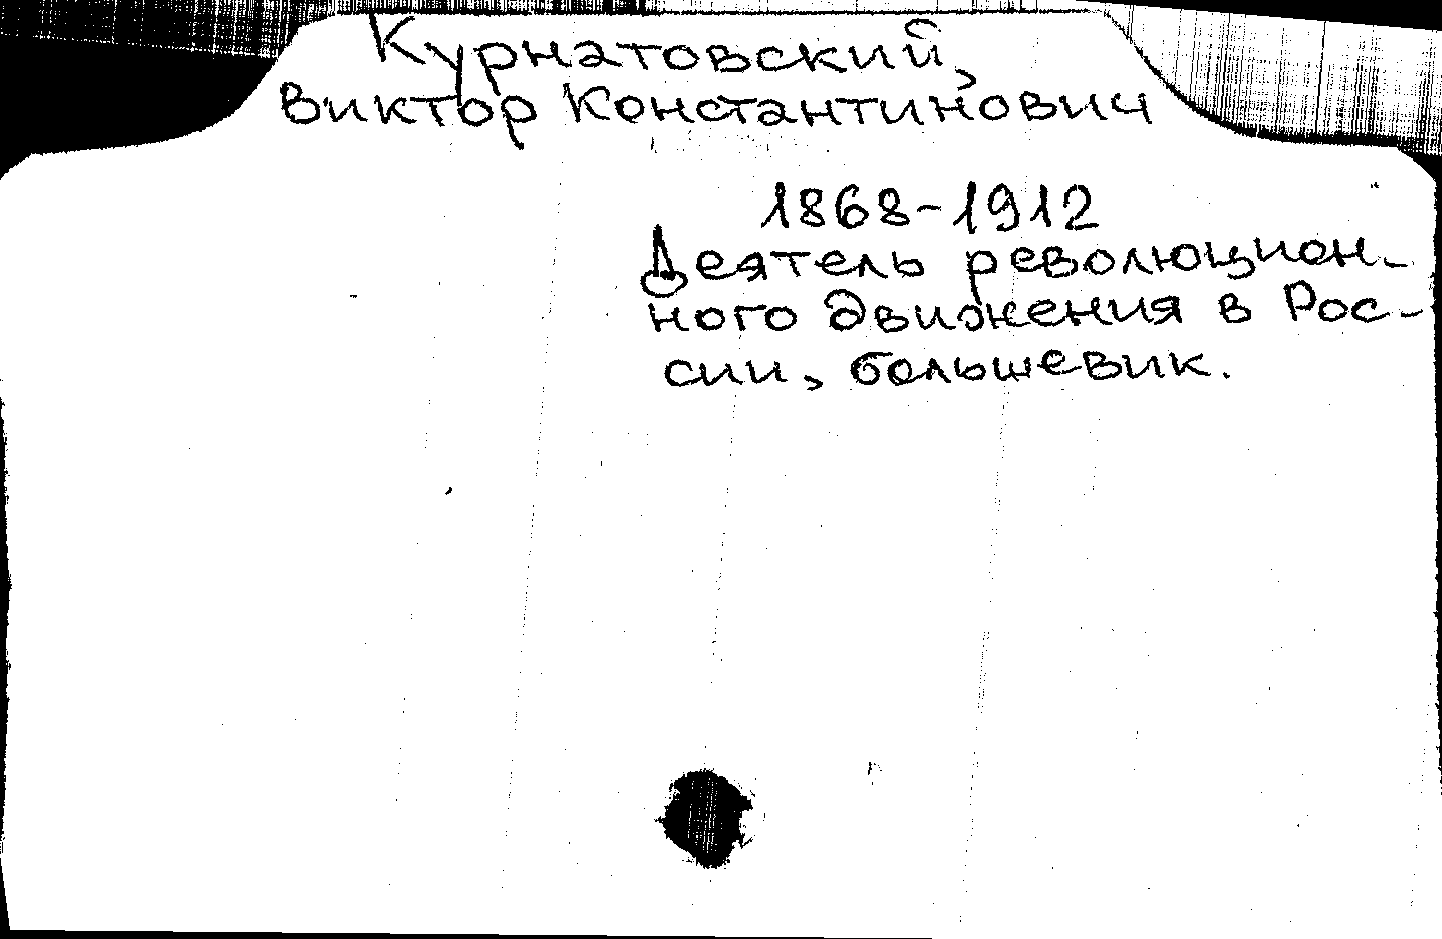 Курнатовский,
Виктор Константинович
1868-1912
Деятель революцион-
ного движения в Рос-
сии, большевик.